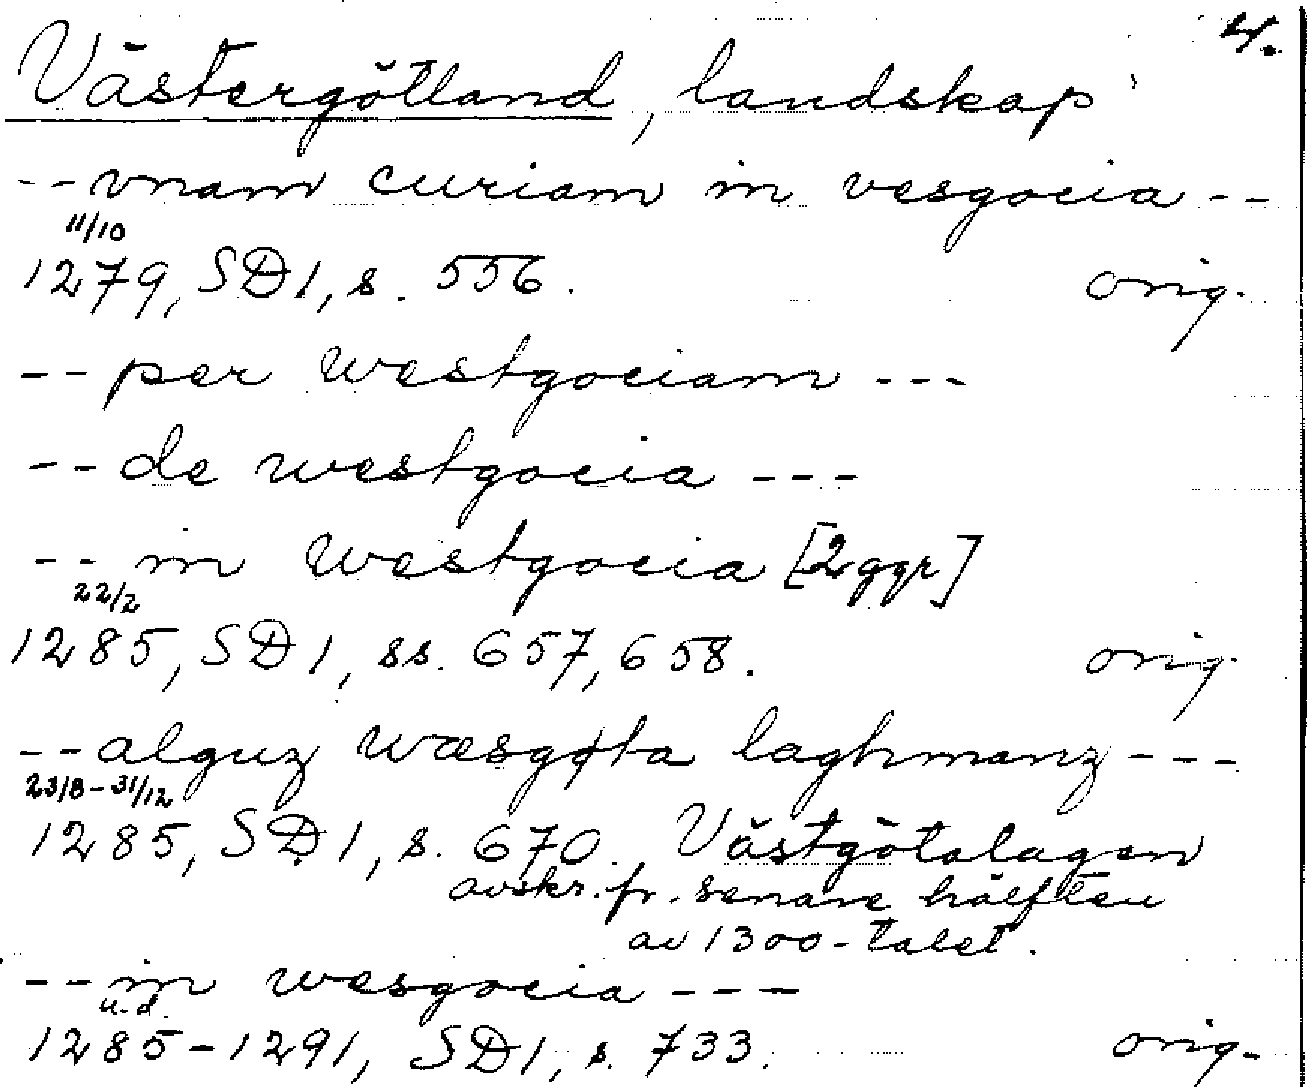 4.
Västergötland, landskap
-- vnam curiam in vesgocia --
11/10
1279, SD 1, s. 556. orig.
-- per westgociam ---
-- de westgocia ---
-- in westgocia [2 ggr]
22/2
1285, SD 1, ss. 657, 658. orig.
-- alguz wæsgøta laghmanz ---
23/8 – 31/12
1285, SD 1, s. 670. Västgötalagen
avskr. fr. senare hälften
av 1300-talet.
-- in wesgocia ---
u.d.
1285–1291, SD 1, s. 733. orig.